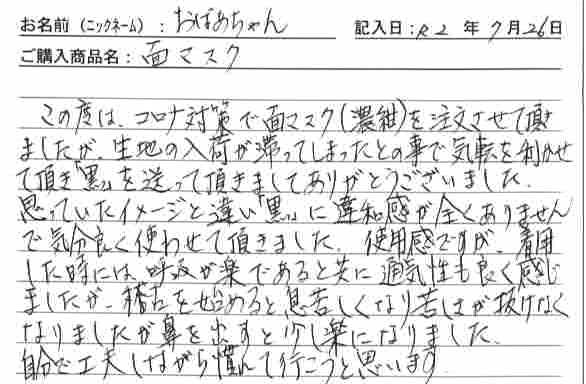 お名前 (ニックネーム) : おばあちゃん 記入日: R2 年 7月26日
ご購入商品名: 面マスク
この度は、コロナ対策で面マスク(濃紺)を注文させて頂き
ましたが、生地の入荷が滞ってしまったとの事で気転を利かせ
て頂き「黒」を送って頂きましてありがとうございました。
思っていたイメージと違い「黒」に違和感が全くありません
で気分良く使わせて頂きました。使用感ですが、着用
した時には、呼吸が楽であると共に通気性も良く感じ
ましたが、稽古を始めると息苦しくなり苦しさが抜けなく
なりましたが鼻を出すと少し楽になりました。
自分で工夫しながら慎んで行こうと思います。